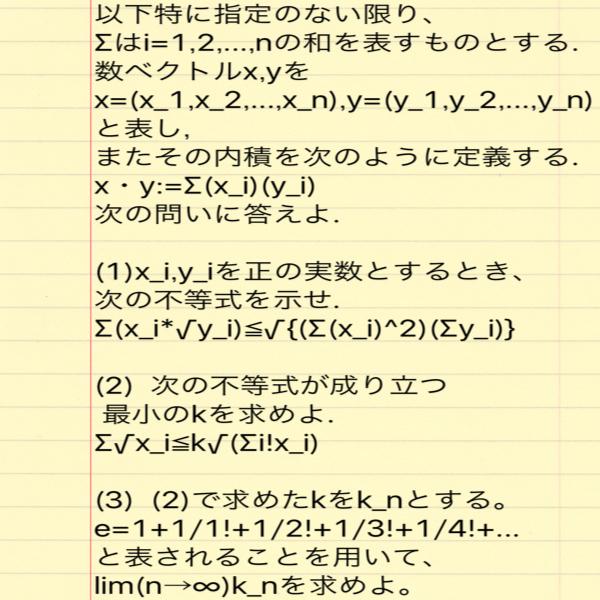 以下特に指定のない限り、
Σはi=1,2,...,nの和を表すものとする.
数ベクトルx,yを
x=(x_1,x_2,...,x_n),y=(y_1,y_2,...,y_n)
と表し,
またその内積を次のように定義する.
x・y:=Σ(x_i)(y_i)
次の問いに答えよ.
(1)x_i,y_iを正の実数とするとき、
次の不等式を示せ.
Σ(x_i*√y_i)≦√{(Σ(x_i)^2)(Σy_i)}
(2) 次の不等式が成り立つ
最小のkを求めよ.
Σ√x_i≦k√(Σi!x_i)
(3) (2)で求めたkをk_nとする。
e=1+1/1!+1/2!+1/3!+1/4!+...
と表されることを用いて、
lim(n→∞)k_nを求めよ。